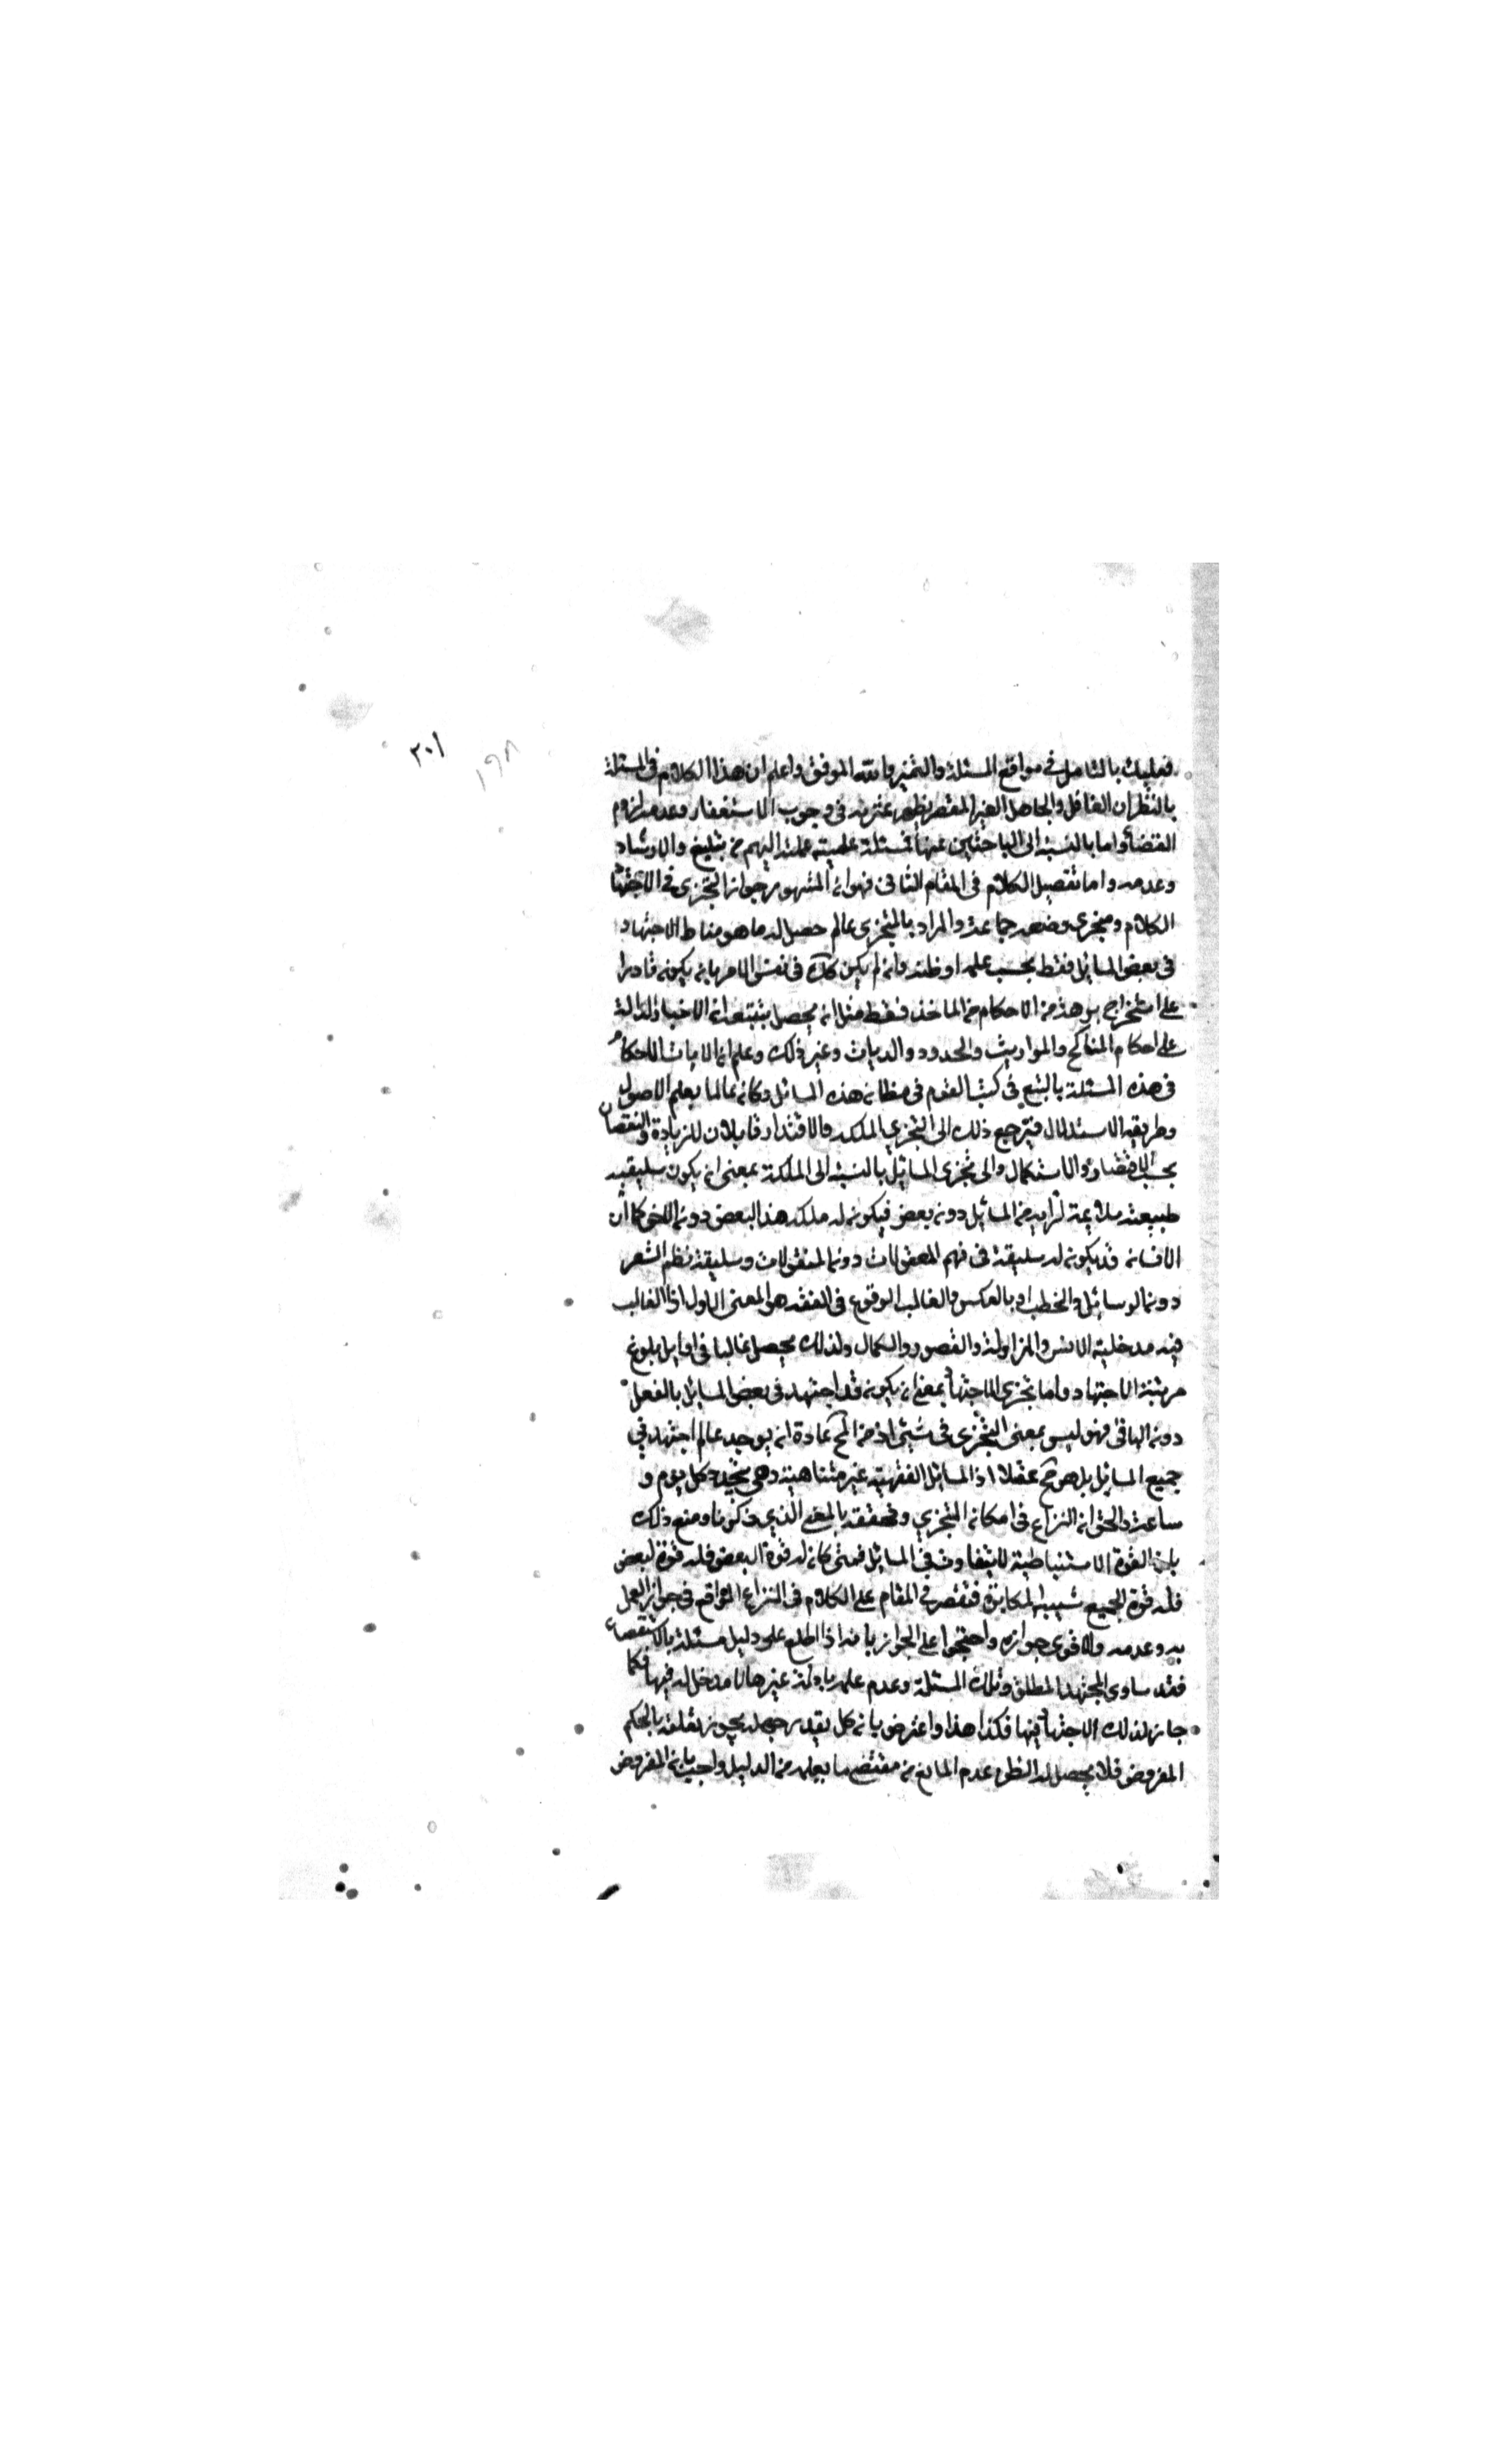 ٣٠١
١٩٨
فعليك بالتامل في مواقع المسئلة والتميز والله الموفق واعلم ان هذا الكلام في المسئلة
بالنظر ان الغافل والجاهل الغير المقصر يظهر ثمرته في وجوب الاستغفار وعدم لزوم
القضاء واما بالنسبة الى الباحثين عنها فمسئلة علمية عملية اليهم من تبليغ والارشاد
وعدمه واما تفصيل الكلام في المقام الثاني فهو ان المشهور جواز التجزي في الاجتهاد
الكلام ومنجزي ومنعه جماعة والمراد بالتجزي عالم حصل له ما هو مناط الاجتهاد
في بعض المسائل فقط بحسب علمه او ظنه وان لم يكن كك في نفس الامر بان يكون قادرا
على استخراج بعض من الاحكام من الماخذ فقط مثل انه يحصل بتتبعه ان الاخبار الدالة
على احكام المناكح والمواريث والحدود والديات وغير ذلك وعلم ان الايات الاحكام
في هذه المسئلة بالتتبع في كتب القوم في مظانه هذه المسائل وكان عالما بعلم الاصول
وطريقه الاستدلال فيرجع ذلك الى التجزي الملكه والاقتدار قابلان للزيادة والنقصان
بحسب الاقتصار والاستكمال والى تجزي المسائل بالنسبة الى الملكة بمعنى ان يكون سليقيه
طبيعته ملائمة لزايد من المسائل دون بعض فيكون له ملكه هذا البعض دون الاخر كما ان
الانسان قد يكون له سليقة في فهم المعقولات دون المنقولات وسليقة نظم الشعر
دون الرسائل والخطب او بالعكس والغالب الوقوع في الفقه هو المعنى الاول اذا الغالب
فيه مدخلية الانس والمزاولة والقصور والكمال ولذلك يحصل غالبا في اوايل بلوغ
مرتبة الاجتهاد واما تجزي الاجتهاد بمعنى ان يكون قد اجتهد في بعض المسائل بالفعل
دون الباقي فهو ليس بمعنى التجزي في شيئ اذ من المح عادة ان يوجد عالم اجتهد في
جميع المسائل بل هو مح عقلا اذ المسائل الفقهية غير متناهية وهي يتجدد كل يوم و
ساعة والحق ان النزاع في امكان التجزي وتحققه بالمعنى الذي ذكرنا ومنع ذلك
بان القوة الاستنباطية لا يتفاوت في المسائل فمتى كان له قوة البعض فله قوة لبعض
فله قوة الجميع شبيه المكابرة فنقتصر في المقام على الكلام في النزاع الواقع في جواز العمل
به وعدمه والاقوى جوازه واحتجوا على الجواز بانه اذا اطلع على دليل مسئلة بالاستقصاء
فقد ساوى المجتهد المطلق في تلك المسئلة وعدم علمه بادلة غيرها لا مدخل له فيها فكما
جاز لذلك الاجتهاد فيها فكذا هذا واعترض بان كل يقدر جهله يجوز تعلقه بالحكم
المفروض فلا يحصل له الظن عدم المانع من مقتضى ما يعلمه من الدليل واجيب بان المفروض